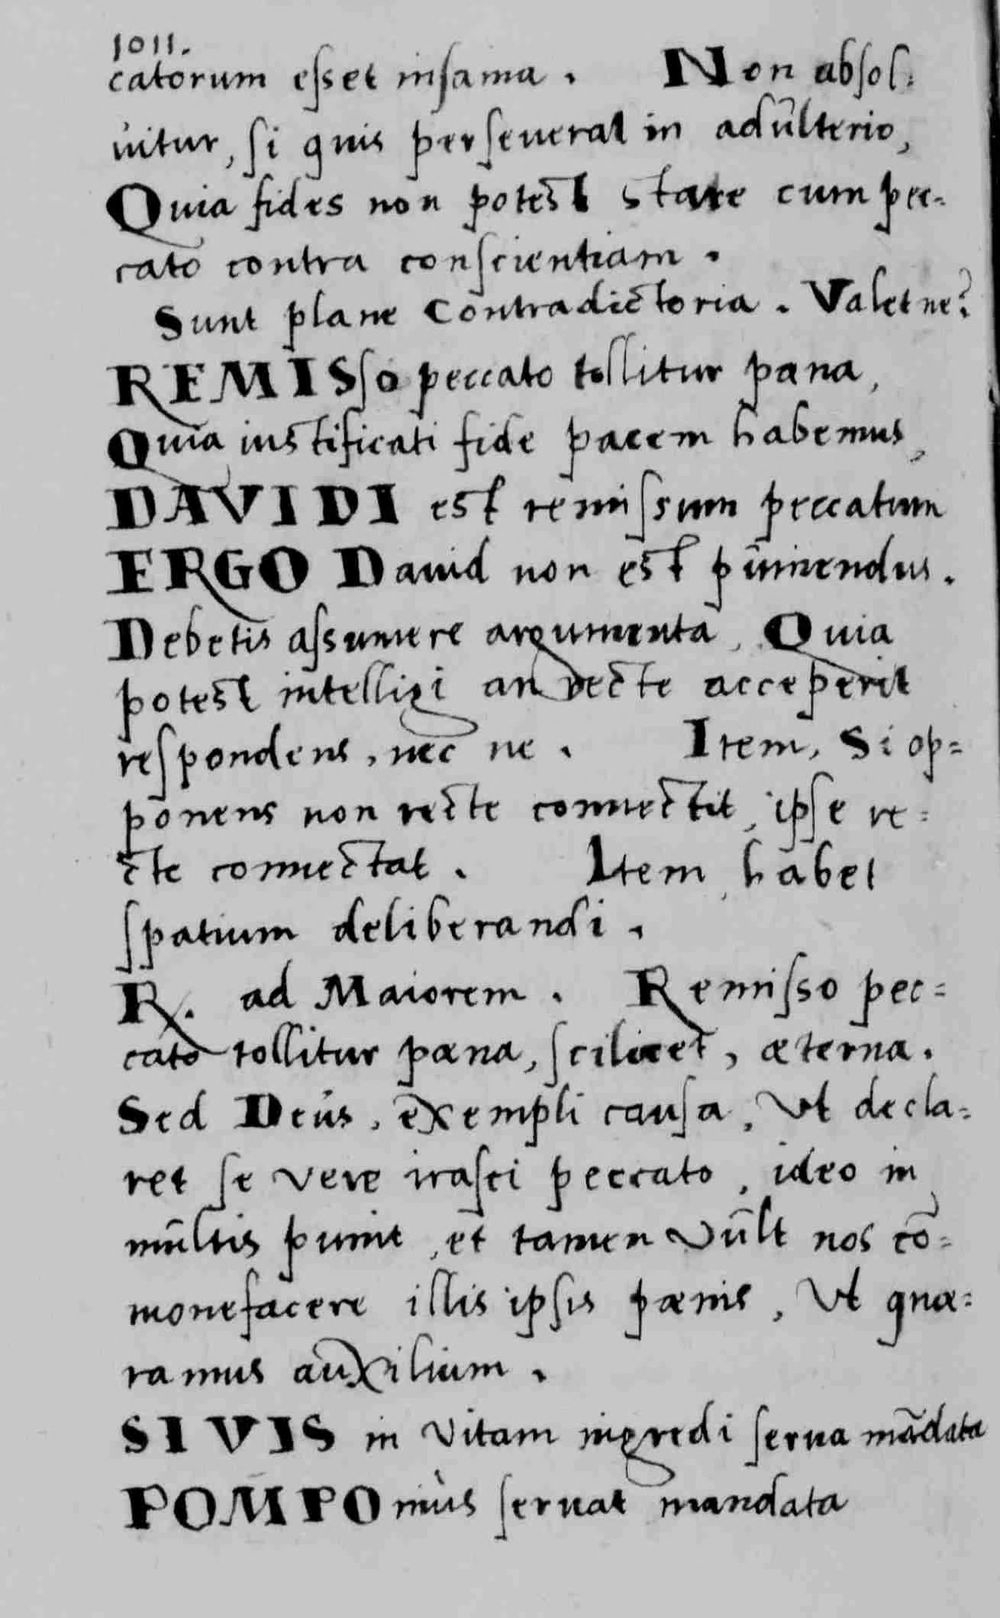 1011.
catorum esset insania. Non absol:
uitur, si quis perseuerat in adulterio,
Quia fides non potest stare cum pec=
cato contra conscientiam.
Sunt plane Contradictoria. Valet ne?
REMISso peccato tollitur pæna,
Quia iustificati fide pacem habemus,
DAVIDI est remissum peccatum
ERGO Dauid non est puniendus.
Debetis assumere argumenta, Quia
potest intelligi an recte acceperit
respondens, nec ne. Item, Si op=
ponens non recte connectit, ipse re=
cte connectat. Item, habet
spatium deliberandi.
R. ad Maiorem. Remisso pec=
cato tollitur pæna, scilicet, æterna.
Sed Deus, exempli causa, Vt decla=
ret se vere irasci peccato, ideo in
multis punit, et tamen vult nos cō=
monefacere illis ipsis pænis, Vt quæ=
ramus auxilium.
SI VIS in vitam ingredi serua mādata
POMPOnius seruat mandata